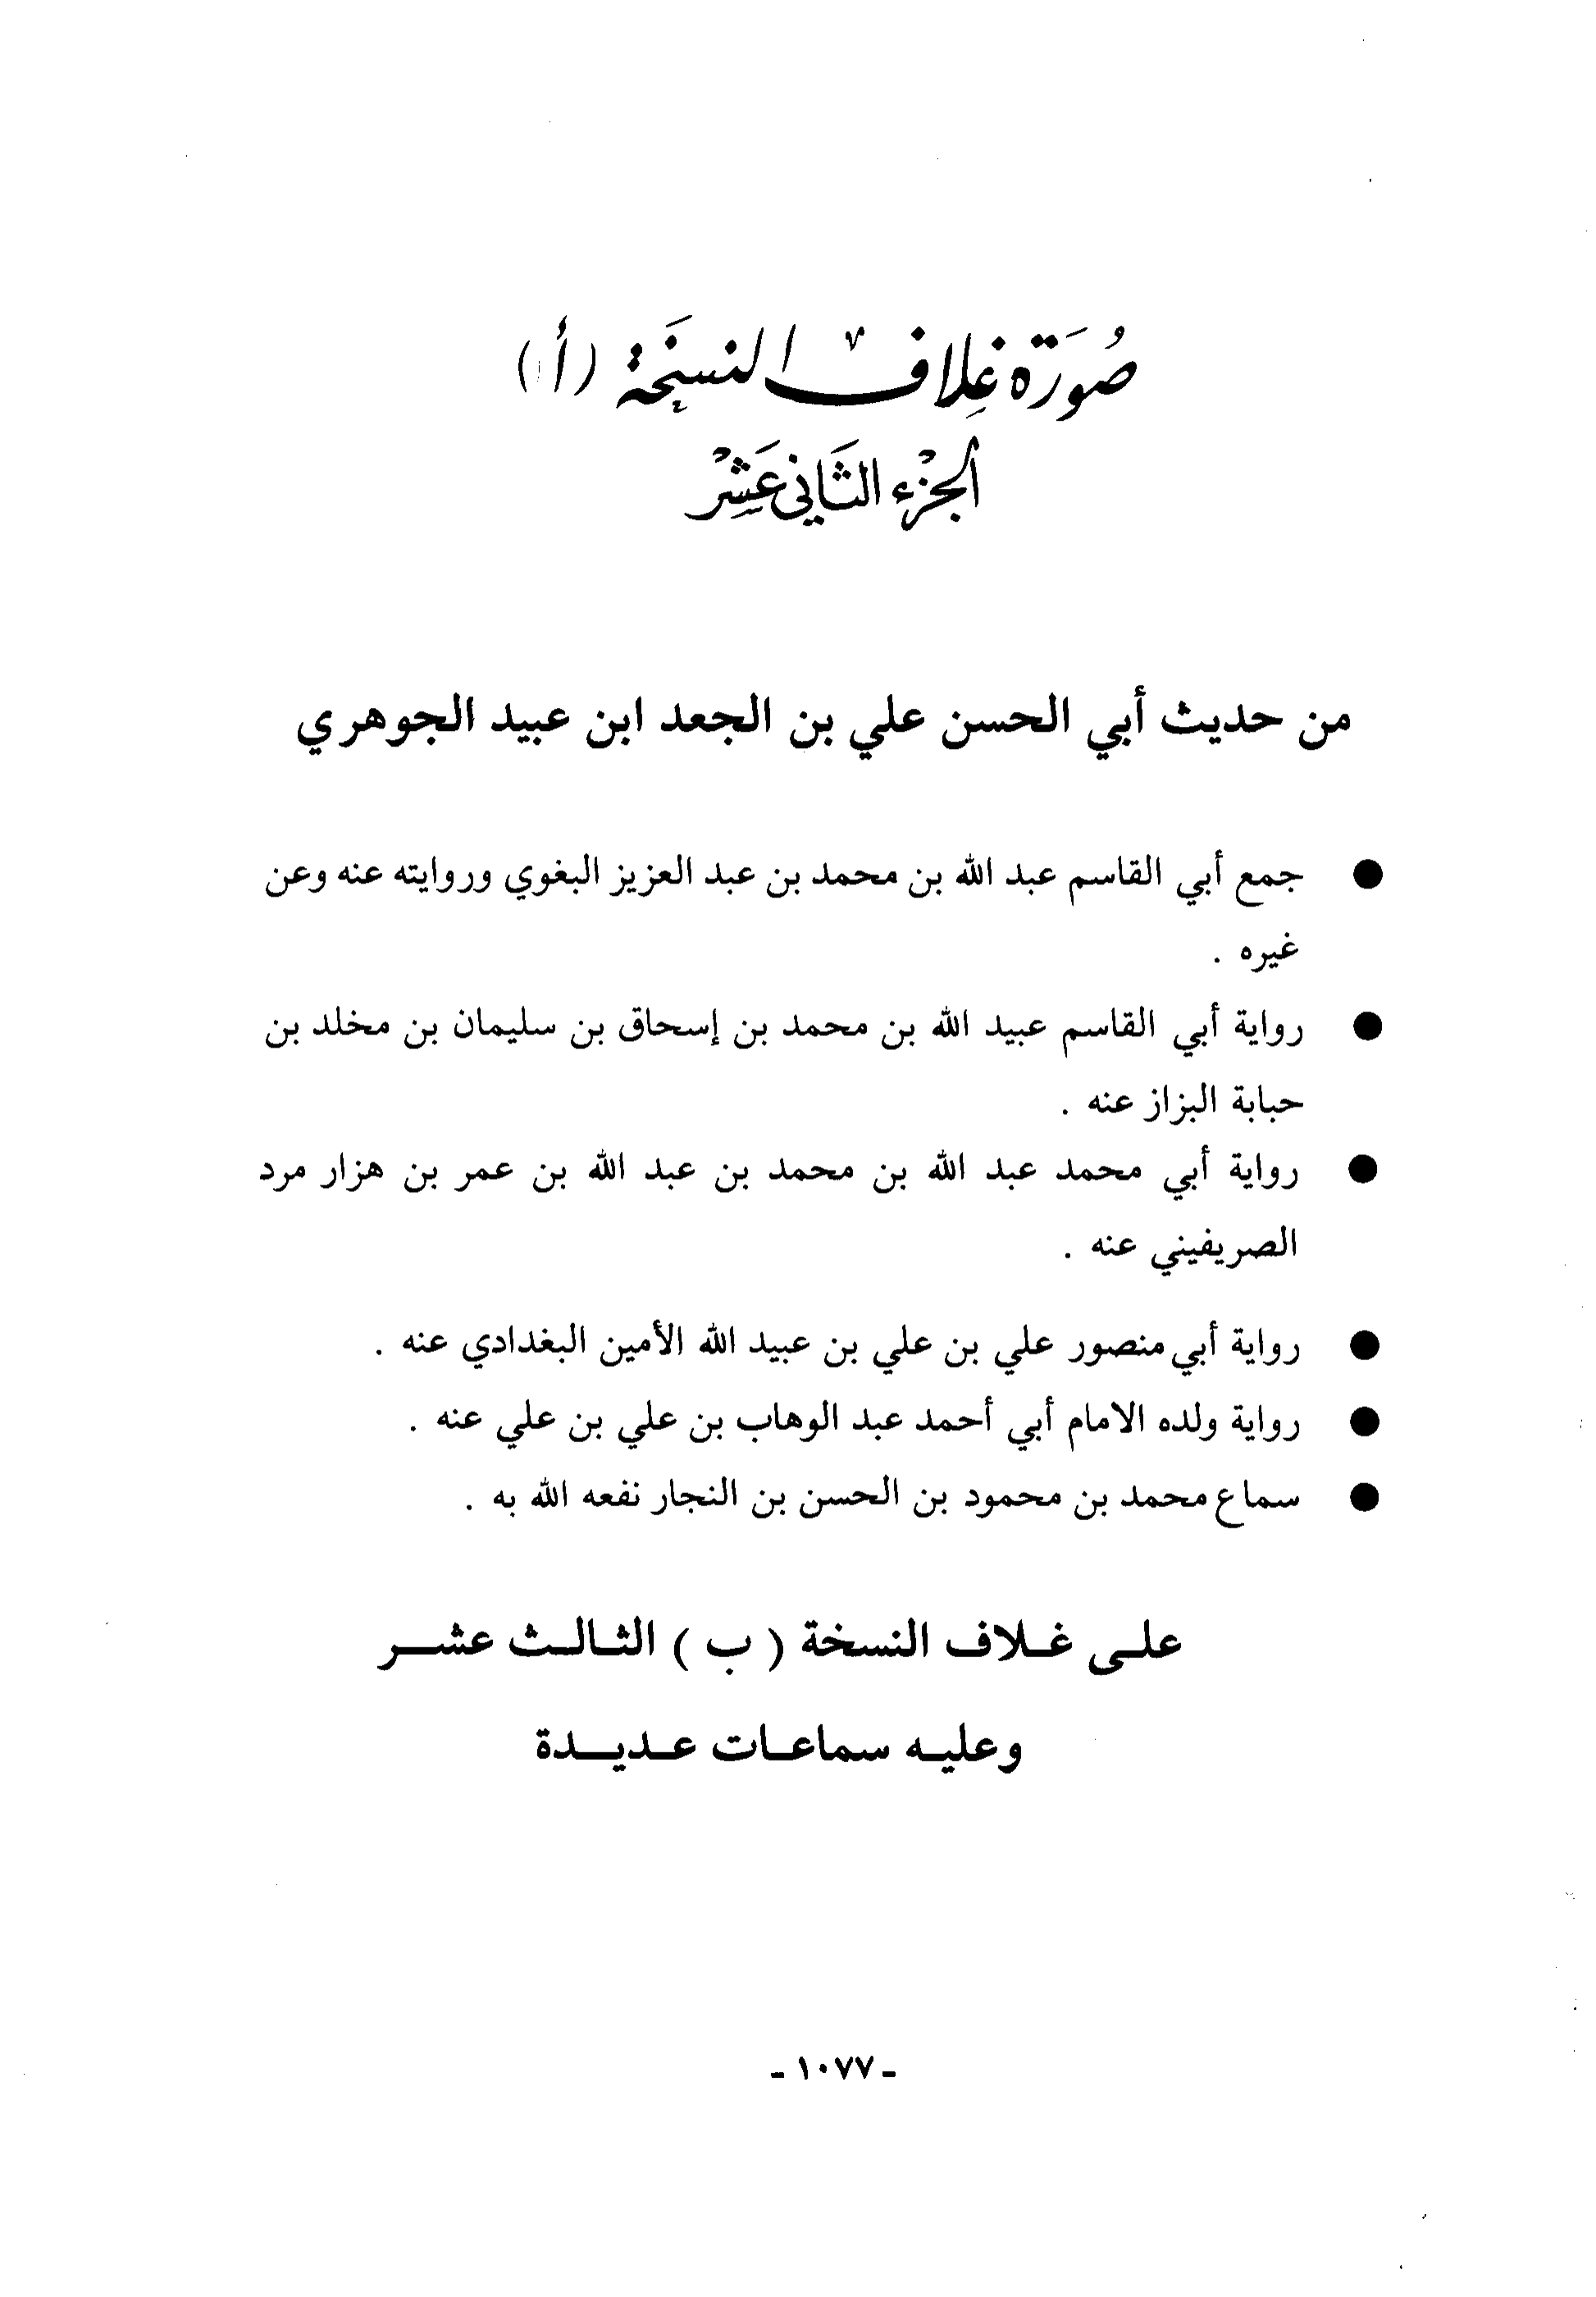 صُورَة غِلاف النسخَة (أ)
الجزْء الثَاني عَشِرْ
من حديث أبي الحسن علي بن الجعد ابن عبيد الجوهري
● جمع أبي القاسم عبد الله بن محمد بن عبد العزيز البغوي وروايته عنه وعن
غيره .
● رواية أبي القاسم عبيد الله بن محمد بن إسحاق بن سليمان بن مخلد بن
حبابة البزاز عنه .
● رواية أبي محمد عبد الله بن محمد بن عبد الله بن عمر بن هزار مرد
الصريفيني عنه .
● رواية أبي منصور علي بن علي بن عبيد الله الأمين البغدادي عنه .
● رواية ولده الامام أبي أحمد عبد الوهاب بن علي بن علي عنه .
● سماع محمد بن محمود بن الحسن بن النجار نفعه الله به .
على غلاف النسخة ( ب ) الثالث عشر
وعليه سماعات عديدة
- ١٠٧٧ -